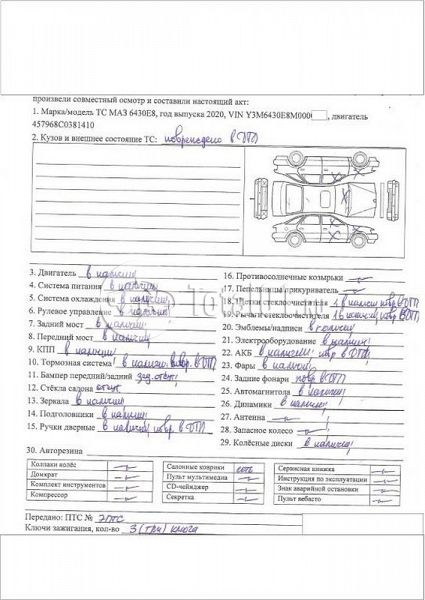 произвели совместный осмотр и составили настоящий акт:
1. Марка/модель ТС МАЗ 6430Е8, год выпуска 2020, VIN Y3M6430E8M000, двигатель
457968С0381410
2. Кузов и внешнее состояние ТС: повреждено в ДТП
3. Двигатель в наличии
4. Система питания в наличии
5. Система охлаждения в наличии
6. Рулевое управление в наличии
7. Задний мост в наличии
8. Передний мост в наличии
9. КПП в наличии
10. Тормозная система в наличии повр. в ДТП
11. Бампер передний/задний
12. Стёкла салона
13. Зеркала в наличии
14. Подголовники в наличии
15. Ручки дверные в наличии повр. в ДТП
16. Противосолнечные козырьки
17. Пепельницы/прикуриватель
18. стеклоочистителя в наличии повр в ДТП
19. Рычаги стеклоочистителя в наличии повр в ДТП
20. Эмблемы/надписи в наличии
21. Электрооборудование в наличии
22. АКБ в наличии повр в ДТП
23. Фары в наличии
24. Задние фонари повр в ДТП
25. Автомагнитола в наличии
26. Динамики в наличии
27. Антенна
28. Запасное колесо
29. Колёсные диски в наличии
30. Авторезина
Колпаки колёс
Домкрат
Комплект инструментов
Компрессор
Салонные коврики есть
Пульт мультимедиа
CD-чейнджер
Секретка
Сервисная книжка
Инструкция по эксплуатации
Знак аварийной остановки
Пульт вебасто
Передано: ПТС № ЭПТС
Ключи зажигания, кол-во 3 (три) ключа